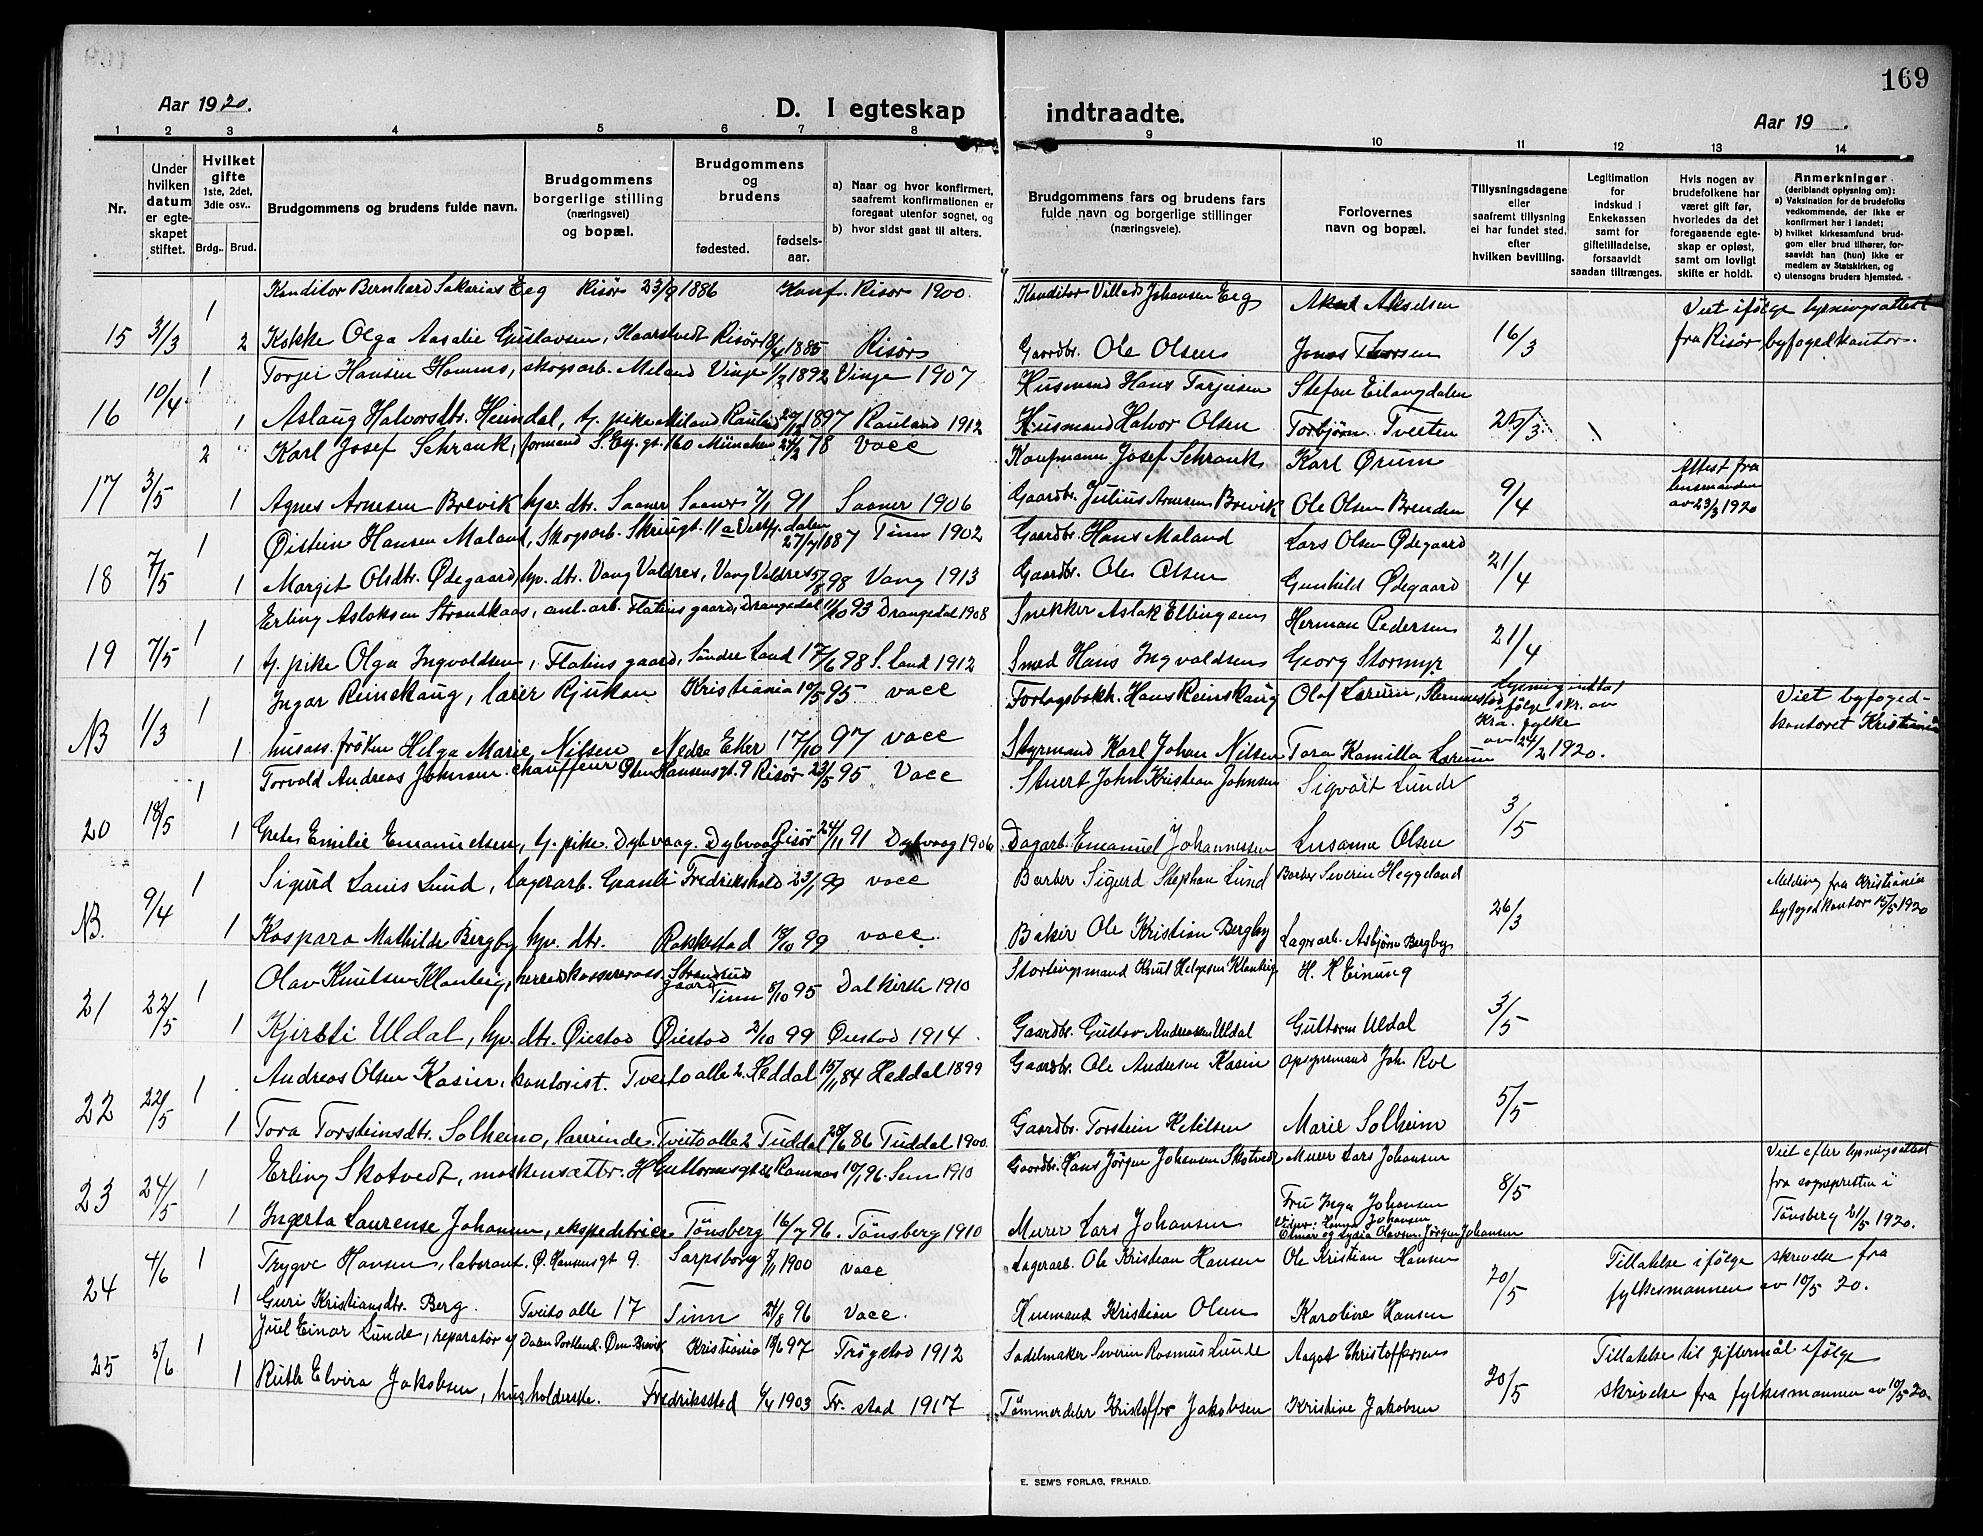 169
Aar 1920.
D. I egteskap indtraadte.
Aar 19 .
1 2 3 4 5 6 7 8 9 10 11 12 13 14
Nr.
Under hvilken datum er egteskapet stiftet.
Hvilket gifte 1ste, 2det, 3die osv..
Brdg.. Brud.
Brudgommens og brudens fulde navn.
Brudgommens borgerlige stilling (næringsvei) og bopæl.
Brudgommens og brudens
fødested. fødselsaar.
a) Naar og hvor konfirmert, saafremt konfirmationen er foregaat utenfor sognet, og
b) hvor sidst gaat til alters.
Brudgommens fars og brudens fars fulde navn og borgerlige stillinger (næringsveie).
Forlovernes navn og bopæl.
Tillysningsdagene eller saafremt tillysning ei har fundet sted. efter hvilken bevilling.
Legitimation for indskud i Enkekassen samt for giftetilladelse, forsaavidt saadan tiltrænges.
Hvis nogen av brudefolkene har været gift før, hvorledes da det foregaaende egteskap er opløst, samt om lovligt skifte er holdt.
Anmerkninger (deriblandt oplysning om):
a) Vaksination for de brudefolks vedkommende, der ikke er konfirmert her i landet;
b) hvilket kirkesamfund brudgom eller brud tilhører, forsaavidt han (hun) ikke er medlem av Statskirken, og
c) utensogns bruders hjemsted.
1 Konditor Bernhard Sakarias Eeg Risør 23/9 1886 Konf. Risør 1900. Konditor Villads Johansen Eeg Aksel Akselsen Viet ifølge lysningsattest
15 3/3 2 Kokke Olga Aasalie Gustavsen, Haarstvedt Risør 18/4 1885 Risør Gaardbr. Ole Olsen Jonas Thorsen 16/3 fra Risør byfogedkontor.
10/4 1 Torjei Hansen Hommo, skogsarb. Meland Vinje 1/3 1892 Vinje 1907 Husmand Hans Torjeisen Stefan Eilangdalen
16 1 Aslaug Halvorsdtr. Heimdal, tj. pike Meland Rauland 1897 Rauland 1912 Husmand Halvor Olsen Torbjørn Tveiten 25/3
2 Karl Josef Schrank, formand S. Ey. gt. 160 München 24/2 78 vacc Kaufmann Josef Schrank Karl Ørum Attest fra lensmanden av 23/3 1920
17 3/5 1 Agnes Arnesen Brevik hjv. dtr. Saaner Saaner 7/1 91 Saaner 1906 Gaardbr. Julius Arnesen Brevik Ole Olsen Brenden 9/4
1 Øistein Hansen Maland, Skogsarb. Skriugt. 11 a Vestfj.dalen 27/7 1887 Tinn 1902 Gaardbr. Hans Maland Lars Olsen Ødegaard
18 7/5 1 Margit Olsdtr. Ødegaard, hjv. dtr. Vang Valdres, Vang Valdres 5/8 98 Vang 1913 Gaardbr. Ole Olsen Gunhild Ødegaard 21/4
1 Erling Aslaksen Strandkaas, anl. arb. Flatins gaard, Drangedal 11/10 93 Drangedal 1908 Snekker Aslak Ellingsen Herman Pedersen
19 7/5 1 tj. pike Olga Ingvaldsen, Flatins gaard, Søndre Land 17/6 98 S. Land 1912 Smed Hans Ingvaldsen Georg Stormyr 21/4
1 Ingar Reinskaug, lærer Rjukan Kristiania 10/5 95 vacc Forlagsbokh. Hans Reinskaug Olaf Lærum, Lysning indtat ifølge skr. av Kra. fylke av 24/2 1920. Viet byfogedkontoret Kristiania
NB 1/3 1 husass. frøken Helga Marie Nilsen Nedre Eker 17/10 97 vacc Styrmand Karl Johan Nilsen Tora Kamilla Lærum
1 Torvald Andreas Johnsen. chauffeur Øster Hansensgt. 9 Risør 23/5 95 Vacc Stuert John Kristian Johnsen Sigvart Lunde
20 18/5 1 Grete Emilie Emanuelsen, tj. pike. Dybvaag. Dybvaag Risør 24/11 91 Dybvaag 1906 Dagarb. Emanuel Johannessen Susanne Olsen 3/5
1 Sigurd Lauis Lund, lagerarb. Granli Fredrikshald 23/1 99 vacc Barber Sigurd Stephan Lund Barber Severin Heggeland Melding fra Kristiania byfogedkontor 15/5 1920
NB. 9/4 1 Kaspara Mathilde Bergby hjv. dtr. Rakkestad 18/10 99 vacc. Baker Ole Kristian Bergby Lagerarb. Asbjørn Bergby 26/3
1 Olav Knutsen Klonteig, herredskassererass. Strandstud gaard Tinn 8/10 95 Dal kirke 1910 Stortingsmand Knut Helgesen Klonteig H. H. Einung
21 22/5 1 Kjirsti Uldal, hjv. dtr. Øiestad Øiestad 2/10 99 Øiestad 1914. Gaardbr. Gustav Andreassen Uldal Guttorm Uldal 3/5
1 Andreas Olsen Kasin, kontorist. Tveito alle 2. Heddal 15/11 84 Heddal 1899 Gaardbr. Ole Andersen Kasin opsynsmand Joh. Roe
22 22/5 1 Tora Torsteinsdtr. Solheim, lærerinde. Tveito alle 2 Tuddal 28/6 86 Tuddal 1900. Gaardbr. Torstein Ketilsen Marie Solheim 5/5
1 Erling Skotvedt, maskensættr. H Guttormsgt 26 Ramnes 10/1 96. Sem 1910 Gaardbr. Hans Jørgen Johansen Skotvedt Murer Lars Johansen Viet efter lysningsattest fra sognepresten i Tønsberg 21/5 1920.
23 24/5 1 Ingerta Laurense Johansen, ekspeditrice Tønsberg 16/7 96. Tønsberg 1910 Murer Lars Johansen Fru Inga Johansen 8/5
Johansen Elmar og Lydia Olavsen. Jørgen Johansen
24 4/6 1 Trygve Hansen, laborant. Ø. Hansensgt 9. Sarpsborg 7/11 1900 vacc Lagerarb. Ole Kristian Hansen Ole Kristian Hansen 20/5 Tillatelse ifølge skrivelse fra
1 Guri Kristiansdtr. Berg. Tveito alle 17 Tinn 24/8 96 vacc. Husmand Kristian Olsen Karoline Hansen fylkesmannen av 10/5 20.
25 5/6 1 Juel Einar Lunde, reparatør v/ Dalen Portland. Cem. Brevik Kristiania 18/6 97 Trøgstad 1912 Sadelmaker Severin Rasmus Lunde Aagot Christoffersen 20/5 Tillatelse til giftermål ifølge
1 Ruth Elvira Jakobsen, husholderske. Fredriksstad 6/4 1903 Fr. stad 1917 Tømmerdeler Kristoffer Jakobsen Kristine Jakobsen skrivelse fra fylkesmannen av 10/5 20.
E. SEM'S FORLAG, FR.HALD.